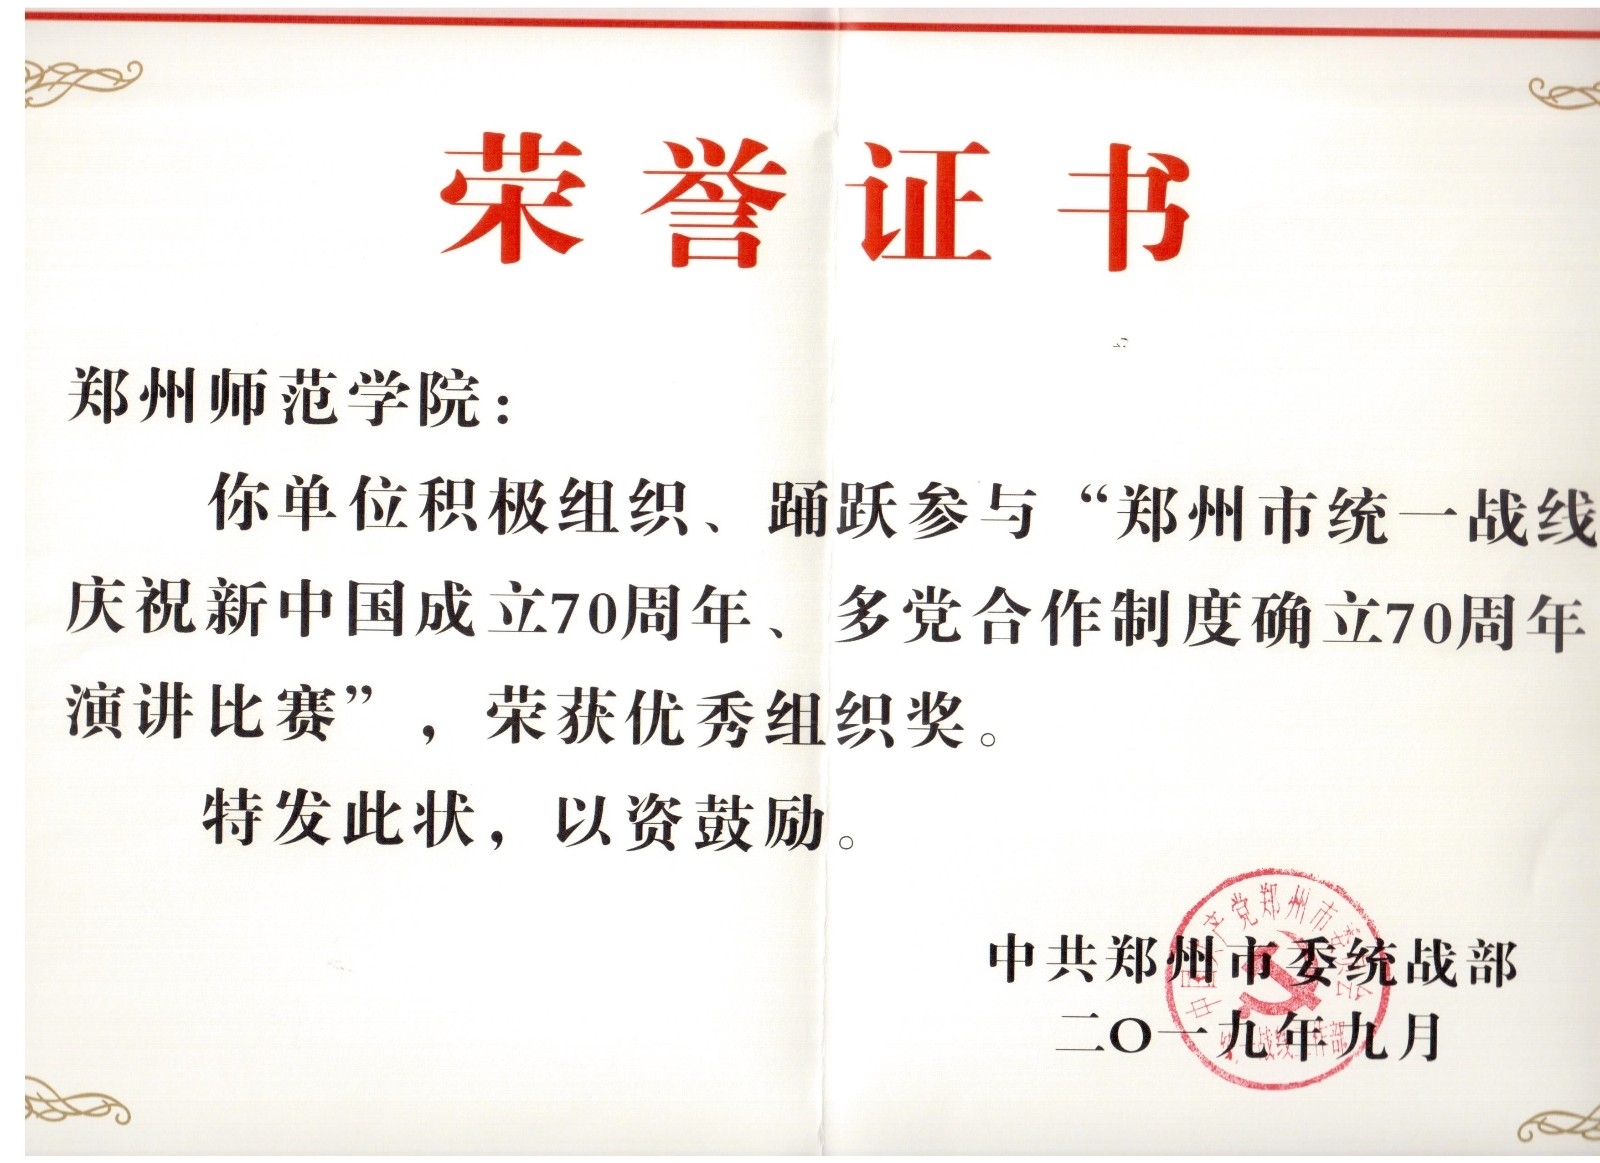 荣誉证书
郑州师范学院：
你单位积极组织、踊跃参与“郑州市统一战线
庆祝新中国成立70周年、多党合作制度确立70周年
演讲比赛”，荣获优秀组织奖。
特发此状，以资鼓励。
中国共产党郑州市委员会
中共郑州市委统战部
二〇一九年九月
统一战线工作部